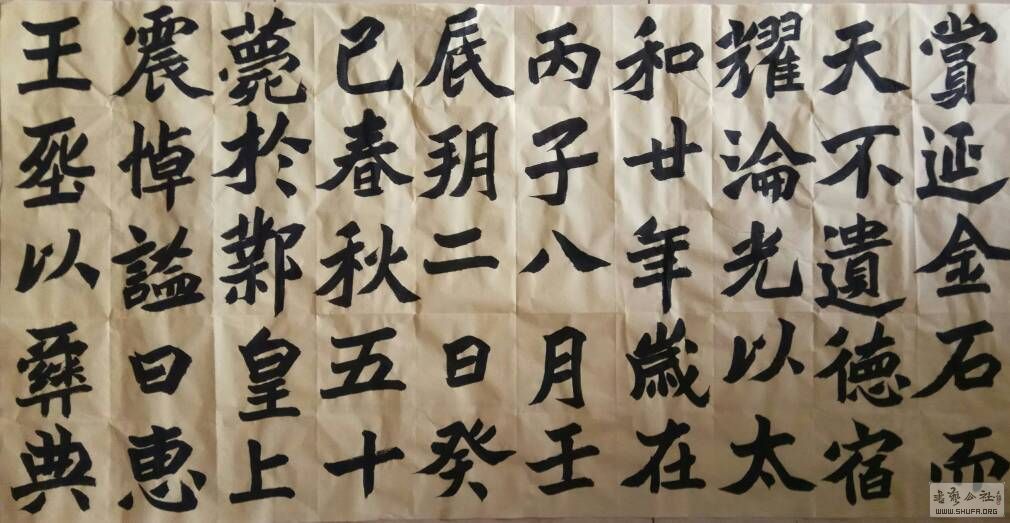 賞延金石而
天不遺德宿
耀淪光以太
和廿年歲在
丙子八月壬
辰朔二日癸
巳春秋五十
薨於鄴皇上
震悼謚曰惠
王葬以彝典
書藝公社
WWW.SHUFA.ORG